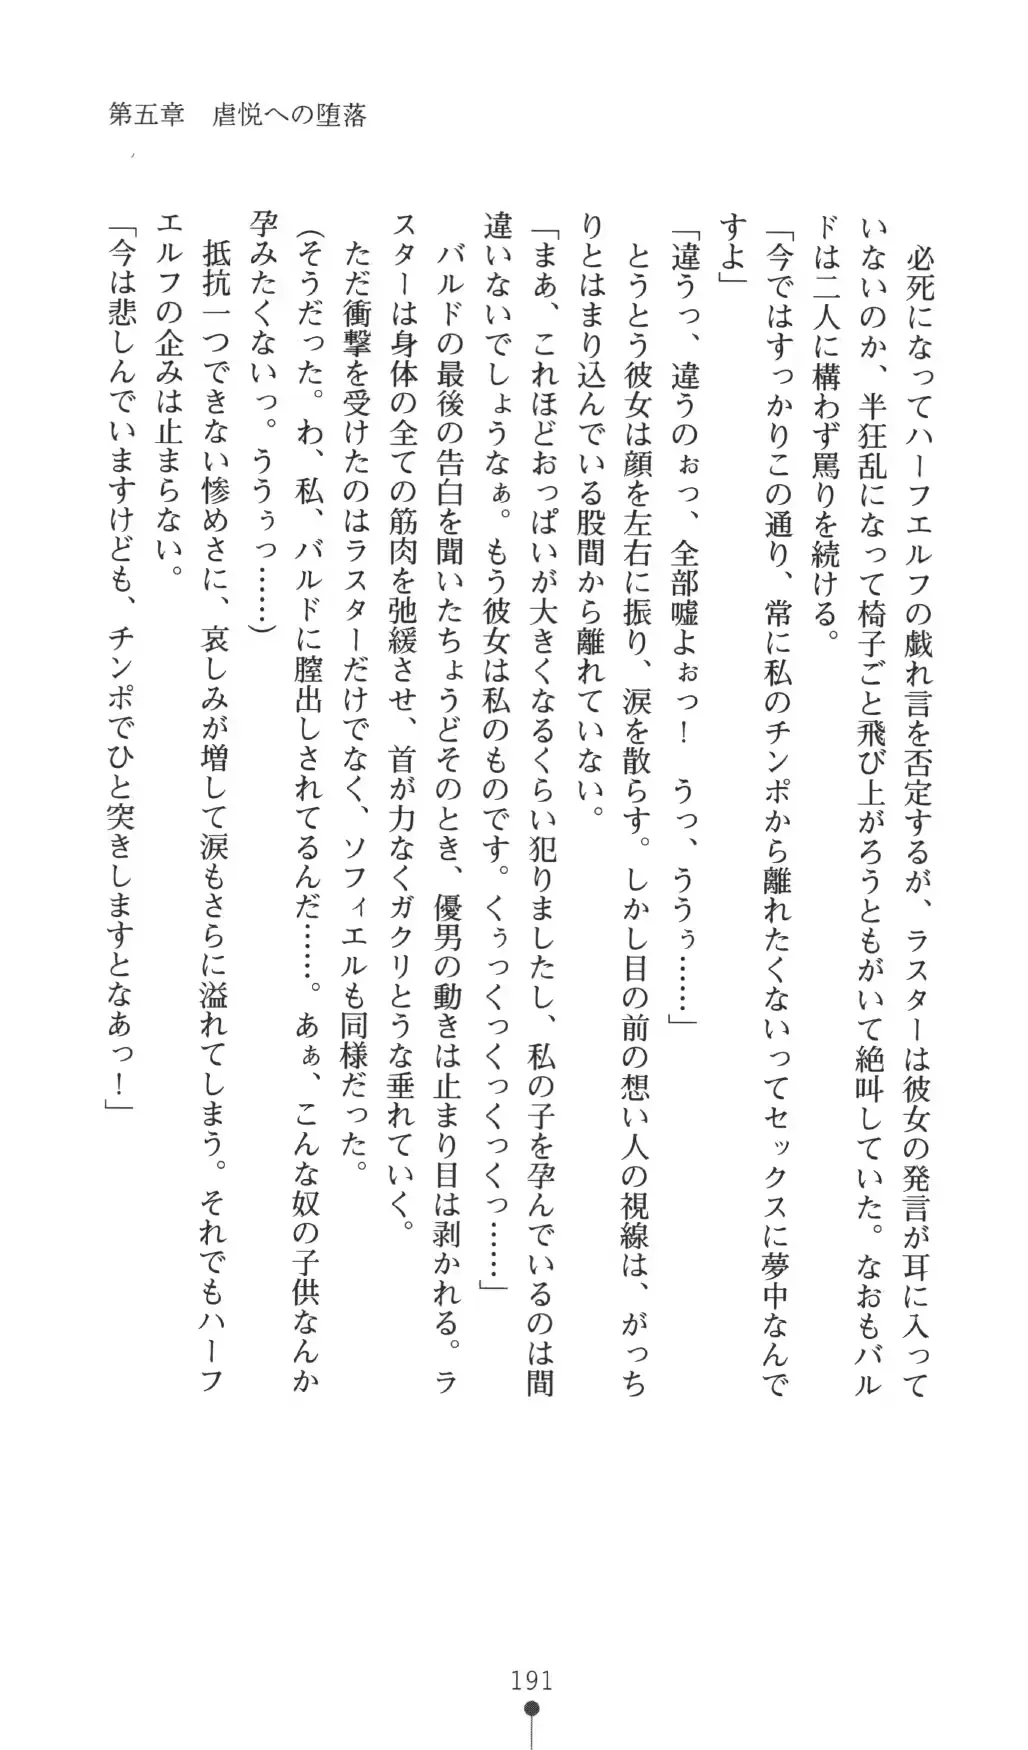 第五章　虐悦への堕落
　必死になってハーフエルフの戯れ言を否定するが、ラスターは彼女の発言が耳に入って
いないのか、半狂乱になって椅子ごと飛び上がろうともがいて絶叫していた。なおもバル
ドは二人に構わず罵りを続ける。
「今ではすっかりこの通り、常に私のチンポから離れたくないってセックスに夢中なんで
すよ」
「違うっ、違うのぉっ、全部嘘よぉっ！　うっ、ううぅ……」
　とうとう彼女は顔を左右に振り、涙を散らす。しかし目の前の想い人の視線は、がっち
りとはまり込んでいる股間から離れていない。
「まあ、これほどおっぱいが大きくなるくらい犯りましたし、私の子を孕んでいるのは間
違いないでしょうなぁ。もう彼女は私のものです。くぅっくっくっくっくっ……」
　バルドの最後の告白を聞いたちょうどそのとき、優男の動きは止まり目は剥かれる。ラ
スターは身体の全ての筋肉を弛緩させ、首が力なくガクリとうな垂れていく。
　ただ衝撃を受けたのはラスターだけでなく、ソフィエルも同様だった。
（そうだった。わ、私、バルドに膣出しされてるんだ……。あぁ、こんな奴の子供なんか
孕みたくないっ。ううぅっ……）
　抵抗一つできない惨めさに、哀しみが増して涙もさらに溢れてしまう。それでもハーフ
エルフの企みは止まらない。
「今は悲しんでいますけども、チンポでひと突きしますとなあっ！」
191